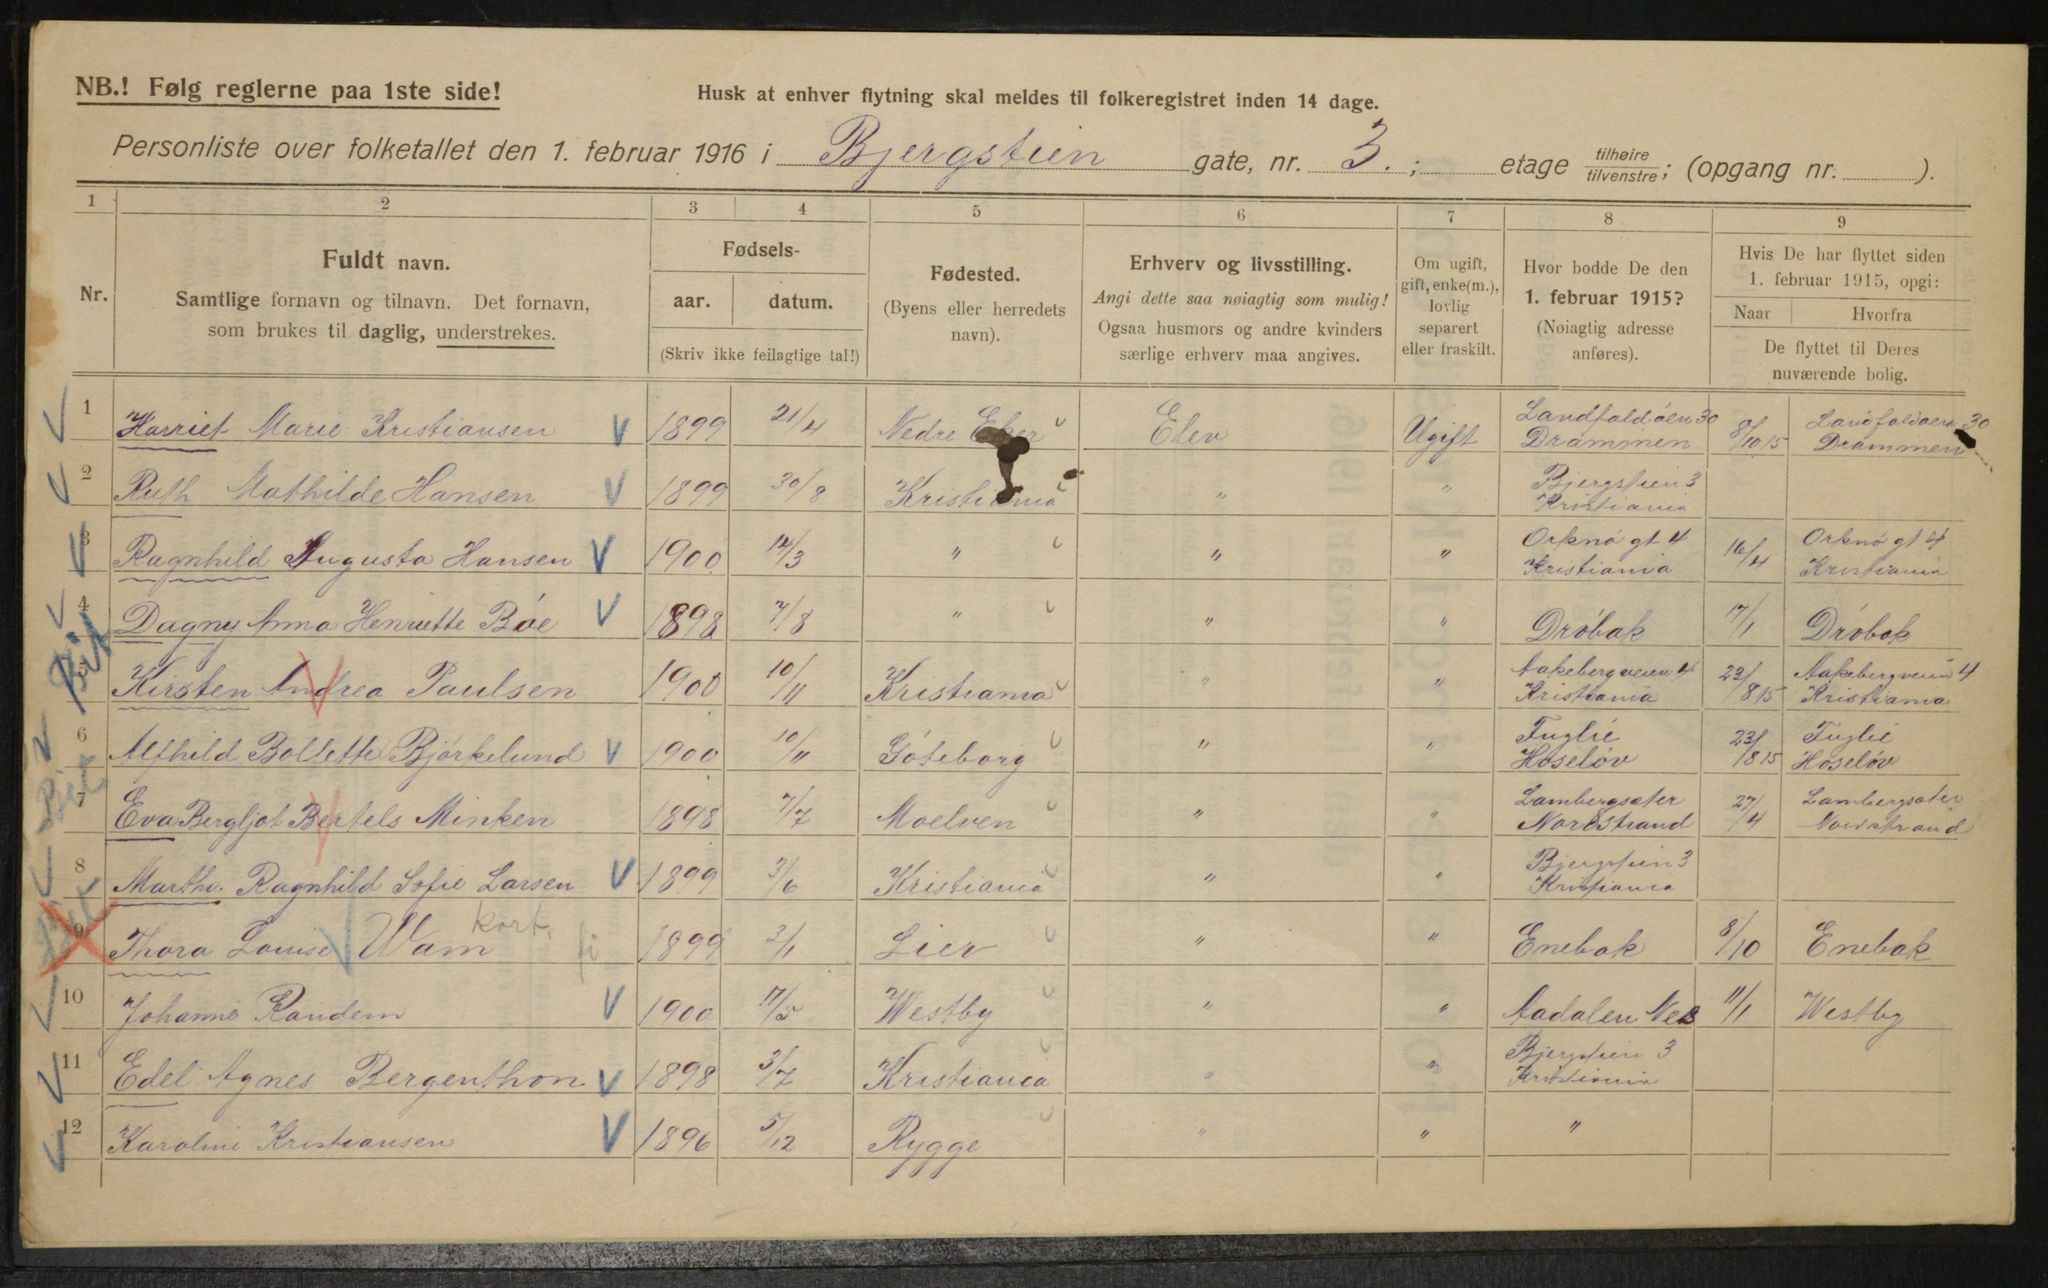 NB.! Følg reglerne paa 1ste side!
Husk at enhver flytning skal meldes til folkeregistret inden 14 dage.
Personliste over folketallet den 1. februar 1916 i Bjergstien gate, nr. 3. ; etage tilhøire tilvenstre; (opgang nr. ).
1 2 3 4 5 6 7 8 9
Nr.
Fuldt navn.
Samtlige fornavn og tilnavn. Det fornavn,
som brukes til daglig, understrekes.
Fødsels-
aar. datum.
(Skriv ikke feilagtige tal!)
Fødested.
(Byens eller herredets
navn).
Erhverv og livsstilling.
Angi dette saa nøiagtig som mulig!
Ogsaa husmors og andre kvinders
særlige erhverv maa angives.
Om ugift,
gift, enke(m.),
lovlig
separert
eller fraskilt.
Hvor bodde De den
1. februar 1915?
(Nøiagtig adresse
anføres).
Hvis De har flyttet siden
1. februar 1915, opgi:
Naar Hvorfra
De flyttet til Deres
nuværende bolig.
1 Harriet Marie Kristiansen 1899 21/4 Nedre Eker Elev Ugift Landfaldöen 30 Drammen 8/10 15 Landfaldöen 30 Drammen
2 Ruth Mathilde Hansen 1899 30/8 Kristiania " " Bjergstien 3 Kristiania
3 Ragnhild Augusta Hansen 1900 12/3 " " " Orknö gt 4 Kristiania 16/4 Orknö gt 4 Kristiania
4 Dagny Anna Henriette Böe 1898 7/8 " " " Dröbak 17/1 Dröbak
Kirsten Andrea Paulsen 1900 10/11 Kristiania " " Aakebergveien 4 Kristiania 23/8 15 Aakebergveien 4 Kristiania
6 Alfhild Bollette Björkelund 1900 10/11 Göteborg " " Fuglie Hoselöv 23/8 15 Fuglie Hoselöv
7 Eva Bergljot Bertels Minken 1898 7/7 Moelven " " Lambergsæter Nordstrand 27/4 Lambergsæter Nordstrand
8 Martha Ragnhild Sofie Larsen 1899 3/6 Kristiania " " Bjergstien 3 Kristiania
9 Thora Louise Wam kort. 1899 2/1 Lier " " Enebak 8/10 Enebak
10 Johanne Randem 1900 17/5 Westby " " Aadalen Nes 11/1 Westby
11 Edel Agnes Bergenthon 1898 3/7 Kristiania " " Bjergstien 3 Kristiania
12 Karoline Kristiansen 1896 5/12 Rygge " " "